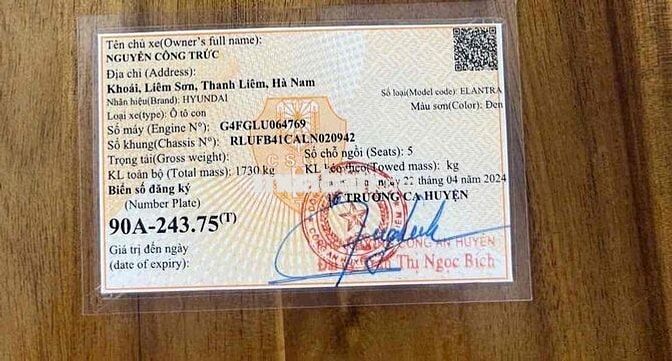 Tên chủ xe(Owner's full name):
NGUYỄN CÔNG TRỨC
Địa chỉ (Address):
Khoái, Liêm Sơn, Thanh Liêm, Hà Nam
Nhãn hiệu(Brand): HYUNDAI Số loại(Model code): ELANTRA
Loại xe(type): Ô tô con Màu sơn(Color): Đen
Số máy (Engine N°): G4FGLU064769
Số khung(Chassis N°): RLUFB41CALN020942
Trọng tải(Gross weight): Số chỗ ngồi (Seats): 5
KL toàn bộ (Total mass): 1730 kg KL kéo theo(Towed mass): kg
Biển số đăng ký ngày 22 tháng 04 năm 2024
(Number Plate) TRƯỞNG CA HUYỆN
90A-243.75(T)
Giá trị đến ngày CÔNG AN HUYỆN
(date of expiry): Thị Ngọc Bích